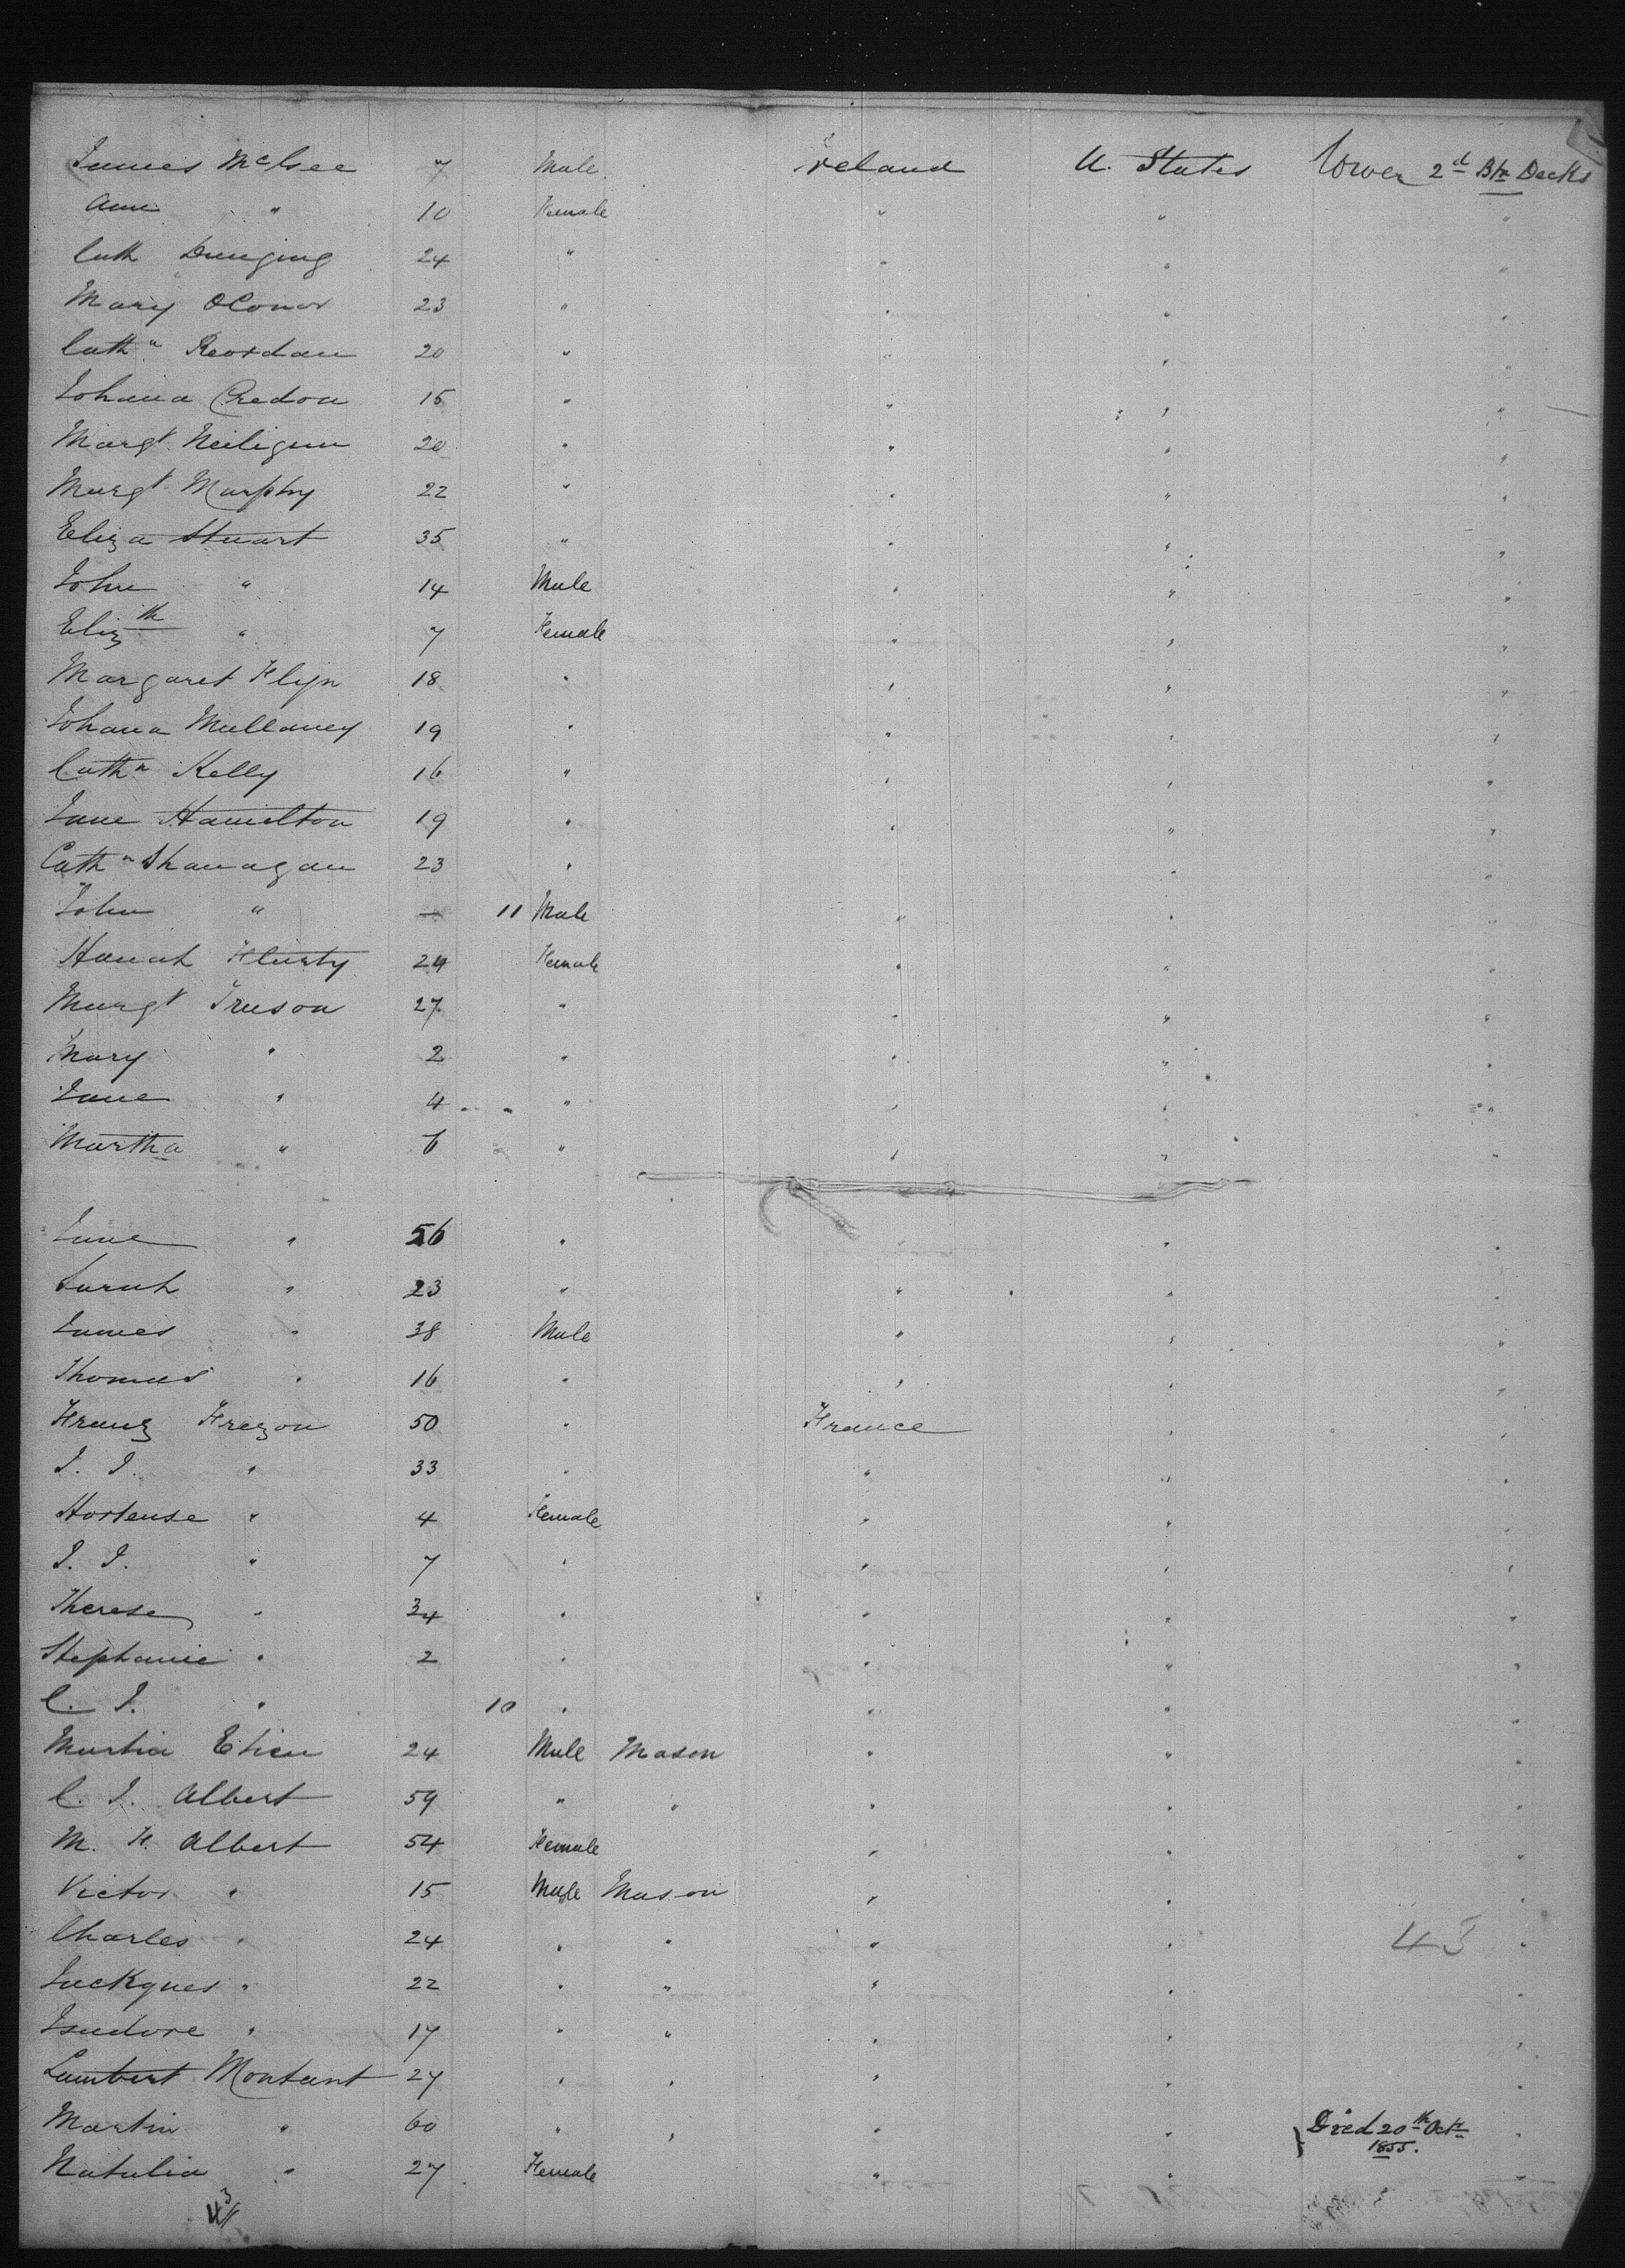 James McGee 7 Male Ireland U. States Lower 2d Btn Decks
Ann " 10 Female " " "
Cath 24 " " " "
Mary OConor 23 " " " "
Cathn Reordan 20 " " " "
Johana Credon 15 " " " "
Margt Neiligan 20 " " " "
Margt Murphy 22 " " " "
Eliza Stuart 35 " " " "
John " 14 Male " " "
Elizth " 7 Female " " "
Margaret Flyn 18 " " " "
Johana Mullaney 19 " " " "
Cathn Kelly 16 " " " "
Jane Hamilton 19 " " " "
Cathn Shanagan 23 " " " "
John " — 11 Male " " "
Hanah Flurty 24 Female " " "
Margt Truson 27 " " " "
Mary " 2 " " " "
Jane " 4 " " " "
Martha " 6 " " " "
Jane " 56 " " " "
Sarah " 23 " " " "
James " 38 Male " " "
Thomas " 16 " " " "
Franz Frezon 50 " France " "
J. J. " 33 " " " "
Hortense " 4 Female " " "
J. J. " 7 " " " "
Therese " 34 " " " "
Stephanie " 2 " " " "
C. J. " 10 " " " "
Martin Etien 24 Male Mason " " "
C. J. Albert 59 " " " " "
M. F. Albert 54 Female " " "
Victor " 15 Male Mason " " "
Charles " 24 " " " " 45 "
Jackques " 22 " " " " "
Isudore " 17 " " " " "
Lambert Montant 27 " " " " "
Martin " 60 " " " " } Died 20th Octr 1855. "
Natalia " 27 Female " " "
43